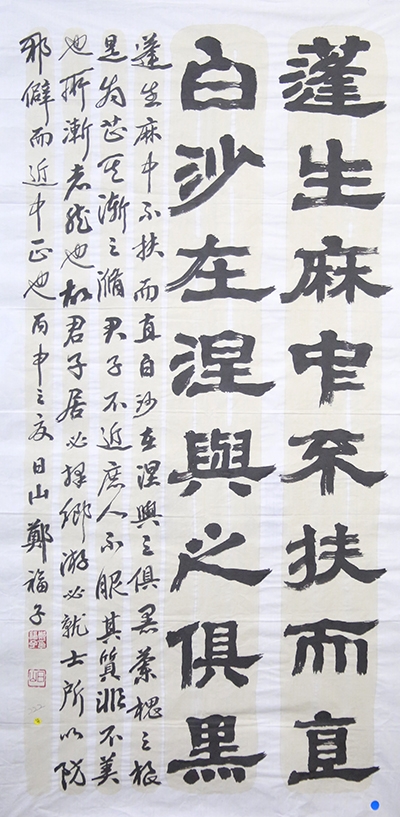 蓬生麻中不扶而直
白沙在涅與之俱黑
蓬生麻中不扶而直白沙在涅與之俱黑蘭槐之根
是為芷其漸之滫君子不近庶人不服其質非不美
也所漸者然也故君子居必擇鄉游必就士所以防
邪僻而近中正也丙申之夏日山鄭福子